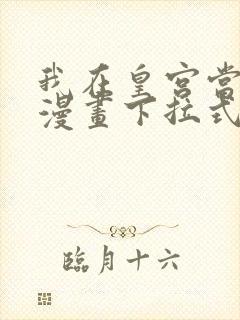 我在皇宮當
漫畫下拉式
臨月十六